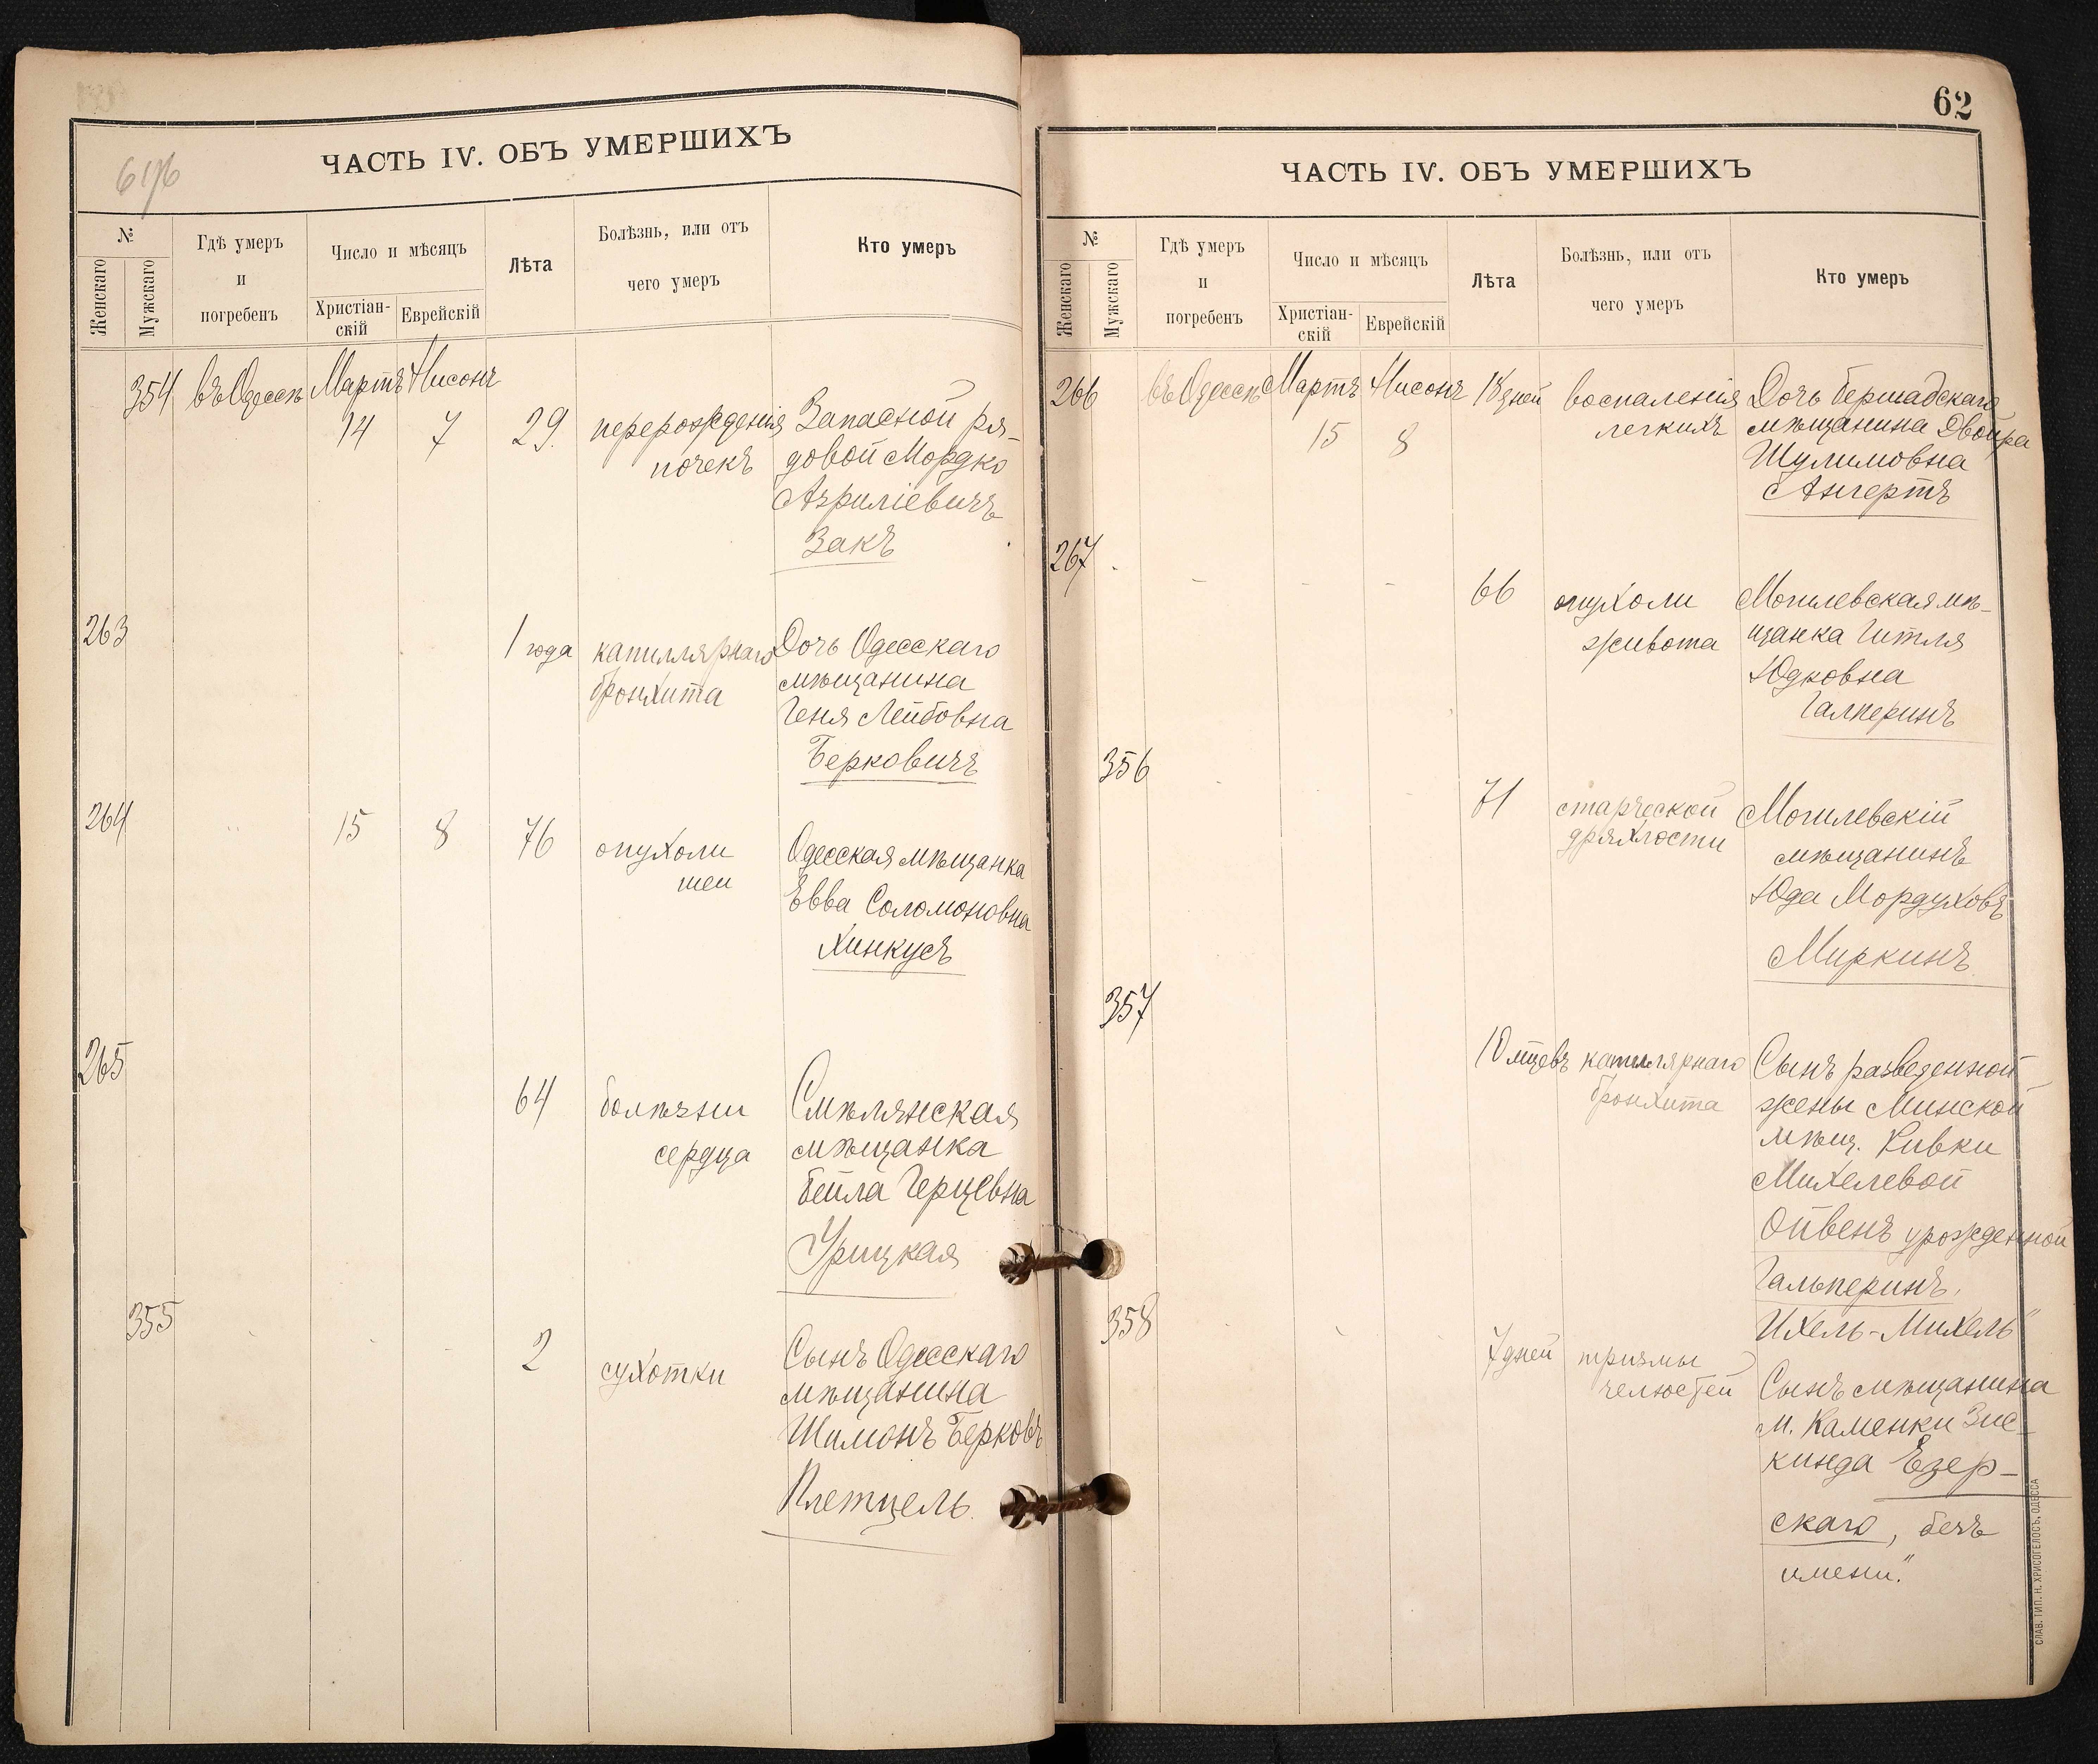 6176
ЧАСТЬ IV. ОБЪ УМЕРШИХЪ
№
Женскаго
Мужскаго
Гдѣ умеръ
и
погребенъ
Число и мѣсяцъ
Христіан-
скій
Еврейскій
Лѣта
Болѣзнь, или отъ
чего умеръ
Кто умеръ
354 въ Одессѣ Мартъ Нисонъ
14 7 29. перерожденія Запасной ря-
почекъ довой Мордко
Азриліевичъ
Закъ
263 1 года капиллярнаго Дочь Одесскаго
бронхита мѣщанина
Геня Лейбовна
Берковичъ
264 " 15 8 76 опухоли Одесская мѣщанка
шеи Евва Соломоновна
Хинкусъ
265 64 болѣзни Смѣлянская
сердца мѣщанка
Бейла Герцевна
Урицкая
355 2 сухотки Сынъ Одесскаго
мѣщанина
Шимонъ Берковъ
Плетцель.
62
ЧАСТЬ IV. ОБЪ УМЕРШИХЪ
№
Женскаго
Мужскаго
Гдѣ умеръ
и
погребенъ
Число и мѣсяцъ
Христіан-
скій
Еврейскій
Лѣта
Болѣзнь, или отъ
чего умеръ
Кто умеръ
266 въ Одессѣ Мартъ Нисонъ дней воспаленія Дочь Бершадскаго
15 8 легкихъ мѣщанина Двойра
Шулимовна
Ангертъ
267 - - - 66 опухоли Могилевская мѣ-
живота щанка Гитля
Юдковна
Галперинъ
356 71 старческой Могилевскій
дряхлости мѣщанинъ
Юда Мордуховъ
Миркинъ
357 10 мцевъ капилярнаго Сынъ разведенной
бронхита жены Минской
мѣщ. Ривки
Михелевой
Ойвенъ урожденной
Гальперинъ,
Ихель-Михель"
358 7 дней тризмы
челюстей Сынъ мѣщанина
м. Каменки Зис-
кинда Езер-
скаго, безъ
имени."
СЛАВ. ТИП. Н. ХРИСОГЕЛОСЪ, ОДЕССА